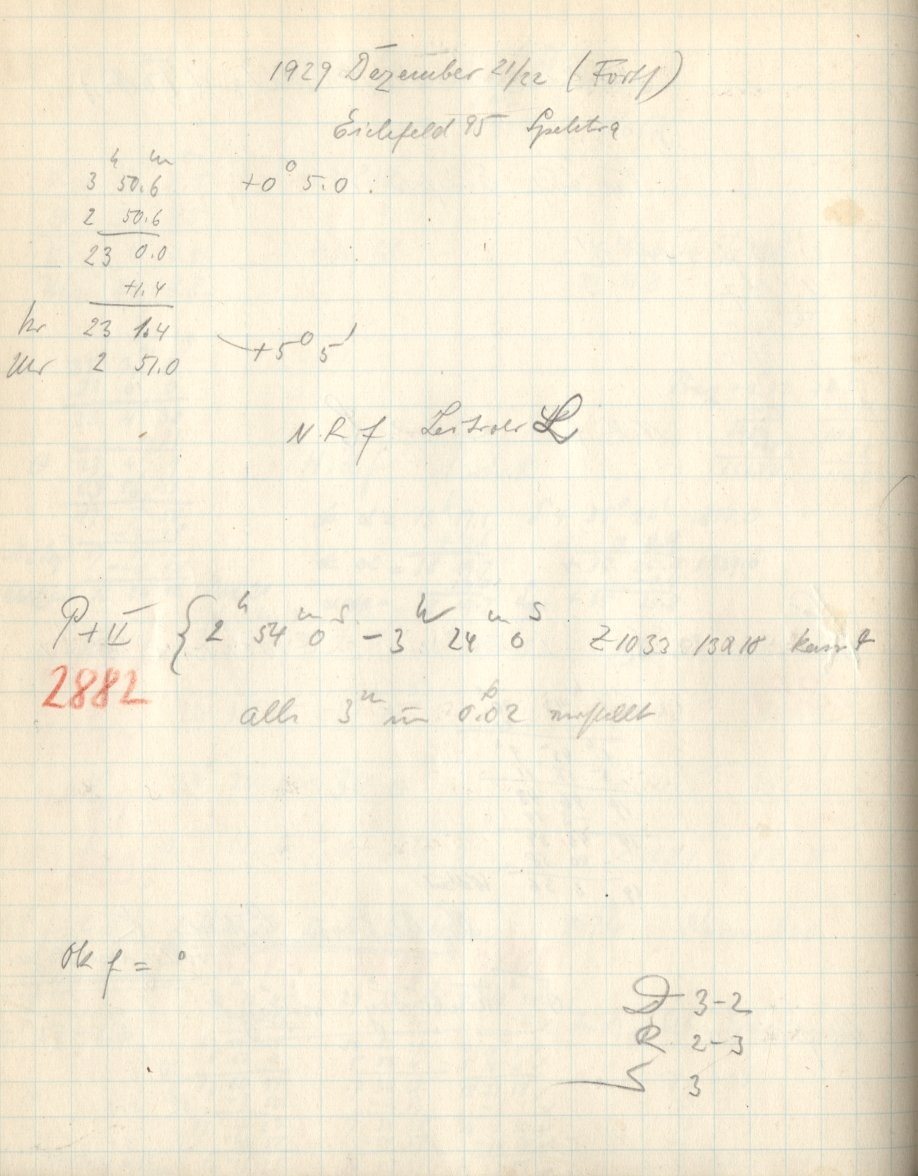 1929 Dezember 21/22 (Forts)
Eichfeld 95 Spektra
h m
3 50.6 +0° 5.0 :
2 50.6
23 0.0
+1.4
hr 23 1.4
Uhr 2 51.0 +5° 5'
N R f Leitrohr
P + V { 2h 54m 0s - 3h 24m 0s Z 1033 13218
2882
alle 3m um 0.02
Ok f = 0
D 3-2
R 2-3
S 3